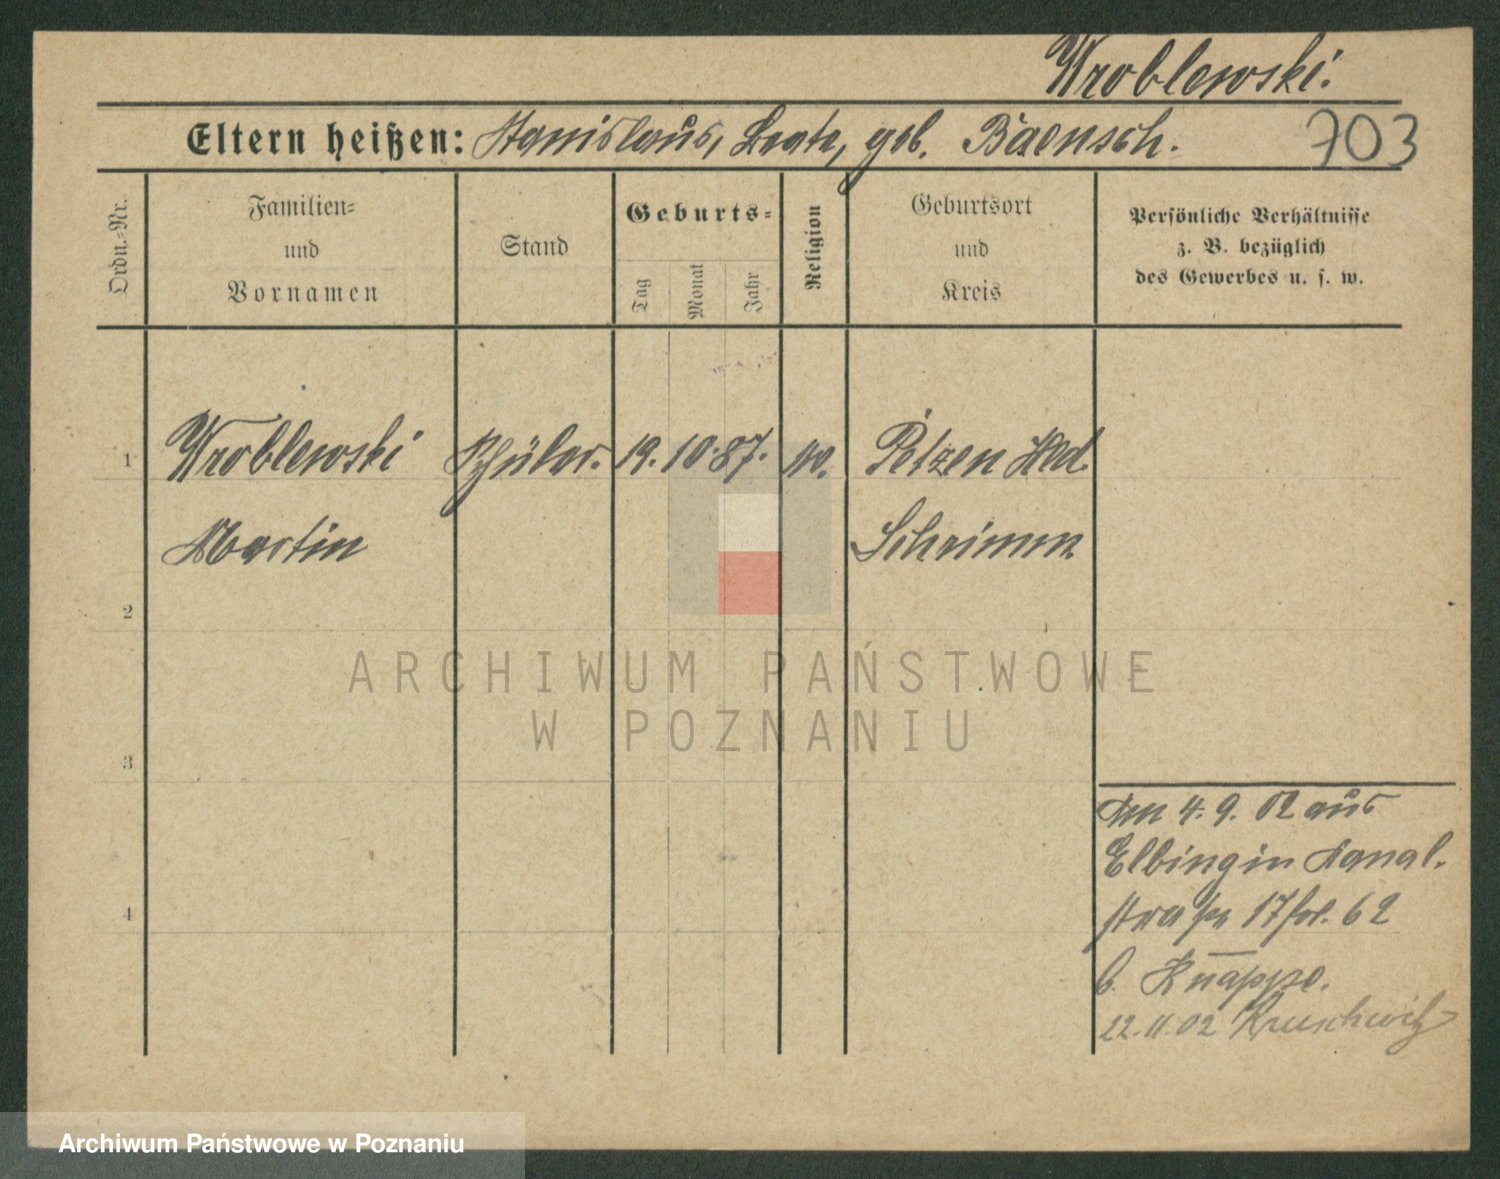 Wroblewski.
Eltern heißen: Stanislaus, Beate, geb. Baensch. 703
Ordn.-Nr.
Familien-
und
Vornamen
Stand
Geburts-
Tag
Monat
Jahr
Religion
Geburtsort
und
Kreis
Persönliche Verhältnisse
z. B. bezüglich
des Gewerbes u. s. w.
1 Wroblewski Schüler. 19. 10. 87. Petzen Hld.
Martin Schrimm.
2
ARCHIWUM PAŃSTWOWE
W POZNANIU
3
den 4. 9. 02 aus
Elbing in Kanal-
straße 17 fol. 62
b. Knappe.
22.11.02 Kruschwitz
4
Archiwum Państwowe w Poznaniu